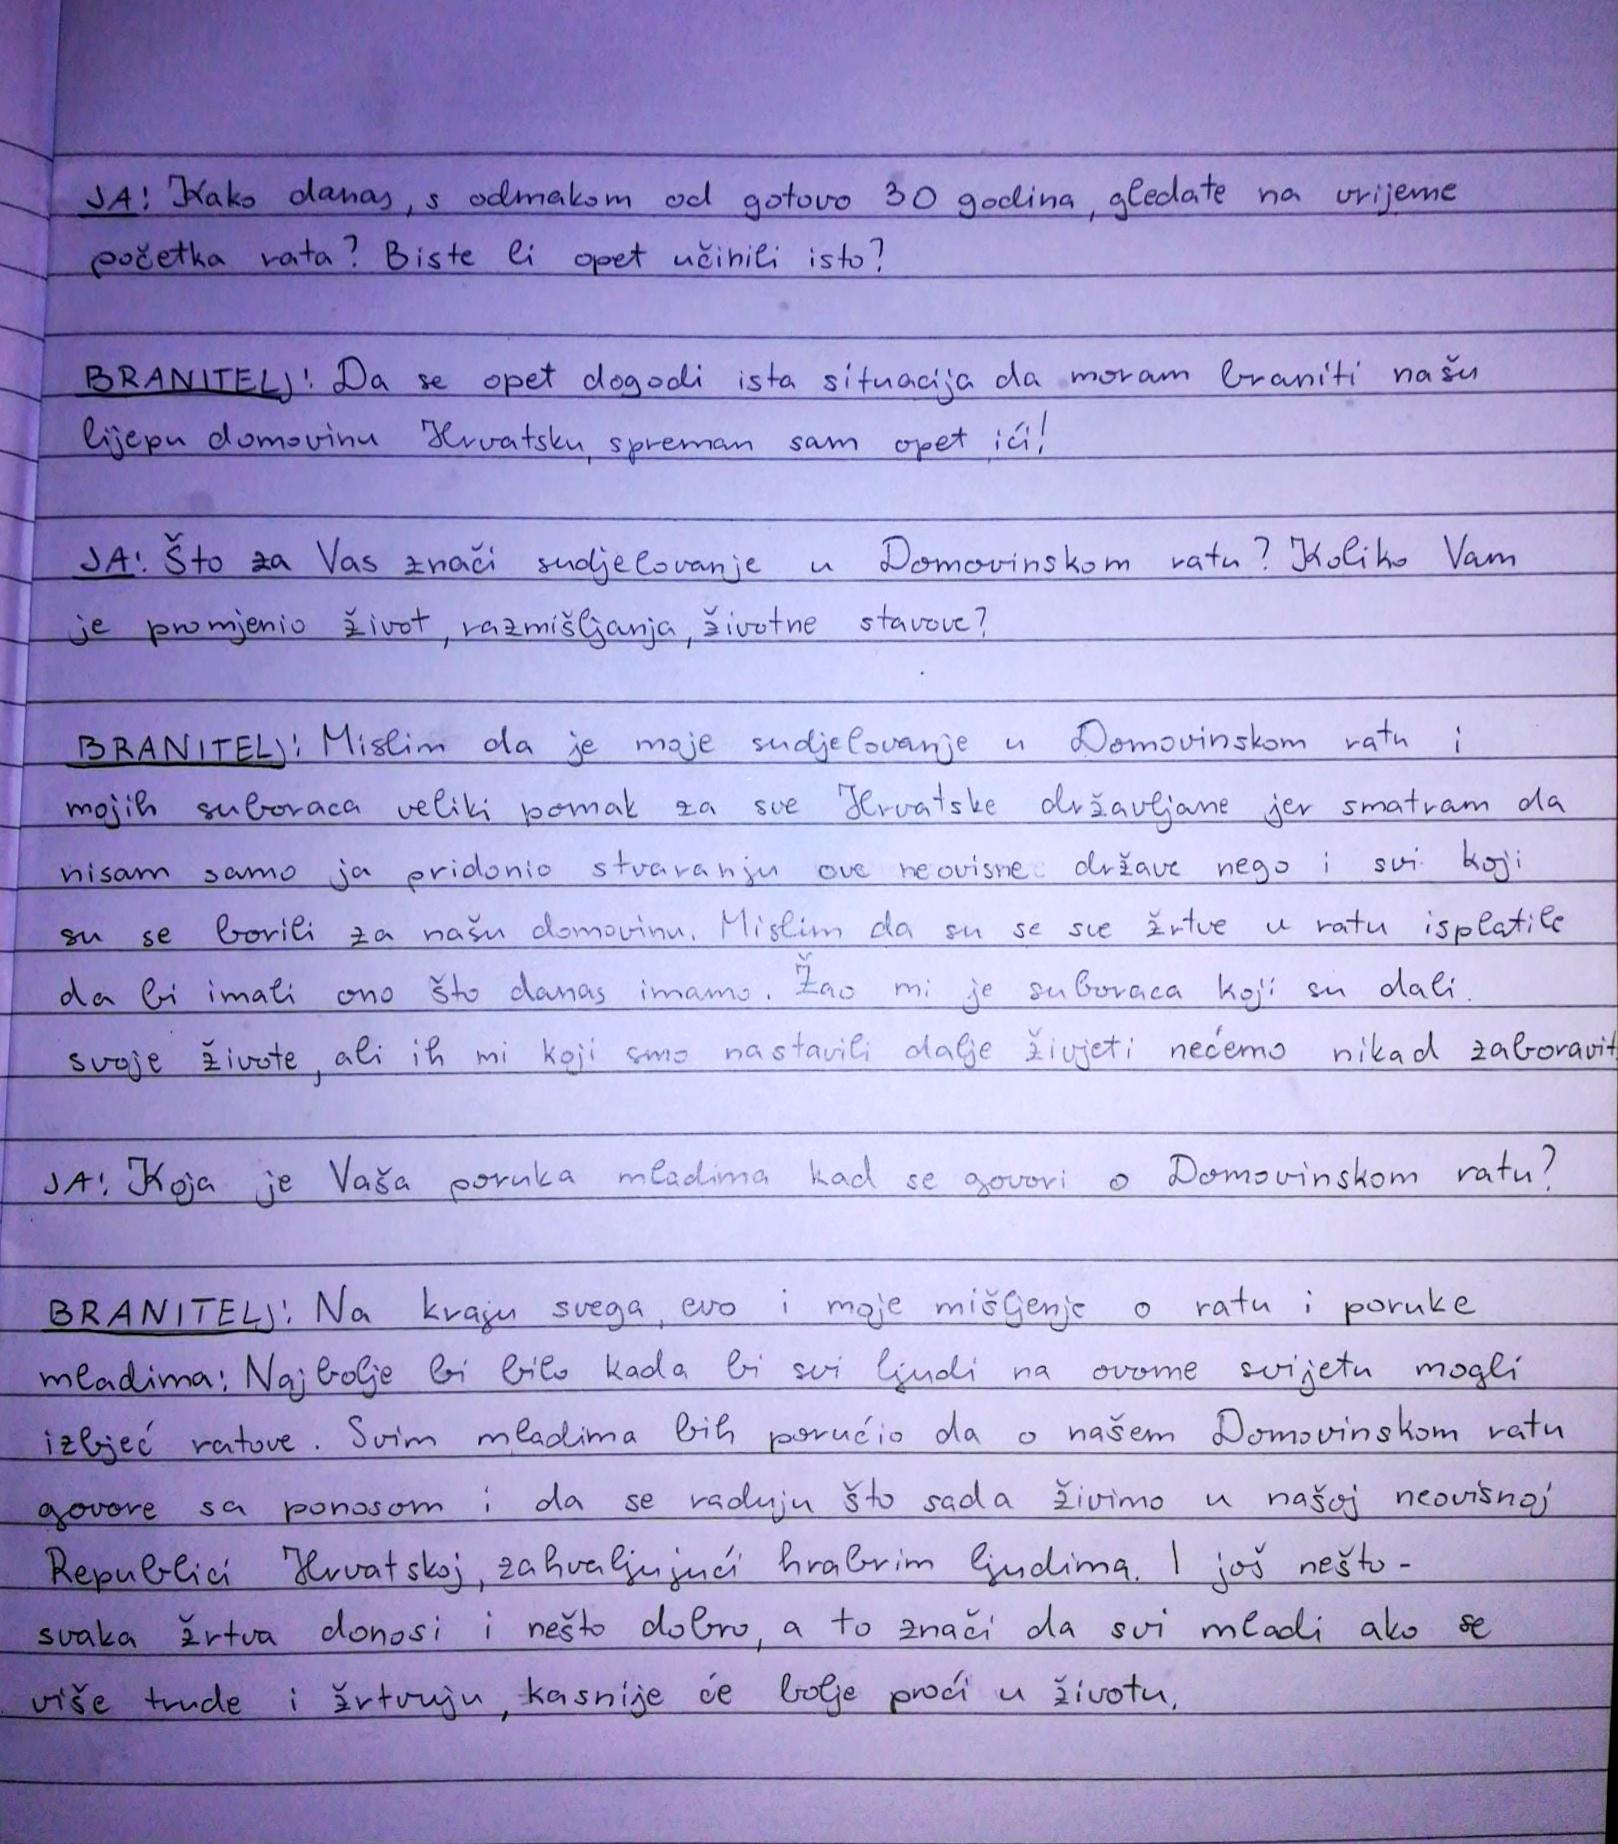 JA: Kako danas, s odmakom od gotovo 30 godina, gledate na vrijeme
početka rata? Biste li opet učinili isto?
BRANITELJ: Da se opet dogodi ista situacija da moram braniti našu
lijepu domovinu Hrvatsku, spreman sam opet ići!
JA: Što za Vas znači sudjelovanje u Domovinskom ratu? Koliko Vam
je promjenio život, razmišljanja, životne stavove?
BRANITELJ: Mislim da je moje sudjelovanje u Domovinskom ratu i
mojih suboraca veliki pomak za sve Hrvatske državljane jer smatram da
nisam samo ja pridonio stvaranju ove neovisne države nego i svi koji
su se borili za našu domovinu. Mislim da su se sve žrtve u ratu isplatile
da bi imali ono što danas imamo. Žao mi je suboraca koji su dali
svoje živote, ali ih mi koji smo nastavili dalje živjeti nećemo nikad zaboravit
JA: Koja je Vaša poruka mladima kad se govori o Domovinskom ratu?
BRANITELJ: Na kraju svega, evo i moje mišljenje o ratu i poruke
mladima: Najbolje bi bilo kada bi svi ljudi na ovome svijetu mogli
izbjeć ratove. Svim mladima bih poručio da o našem Domovinskom ratu
govore sa ponosom i da se raduju što sada živimo u našoj neovišnoj
Republici Hrvatskoj, zahvaljujući hrabrim ljudima. I još nešto -
svaka žrtva donosi i nešto dobro, a to znači da svi mladi ako se
više trude i žrtvuju, kasnije će bolje proći u životu.